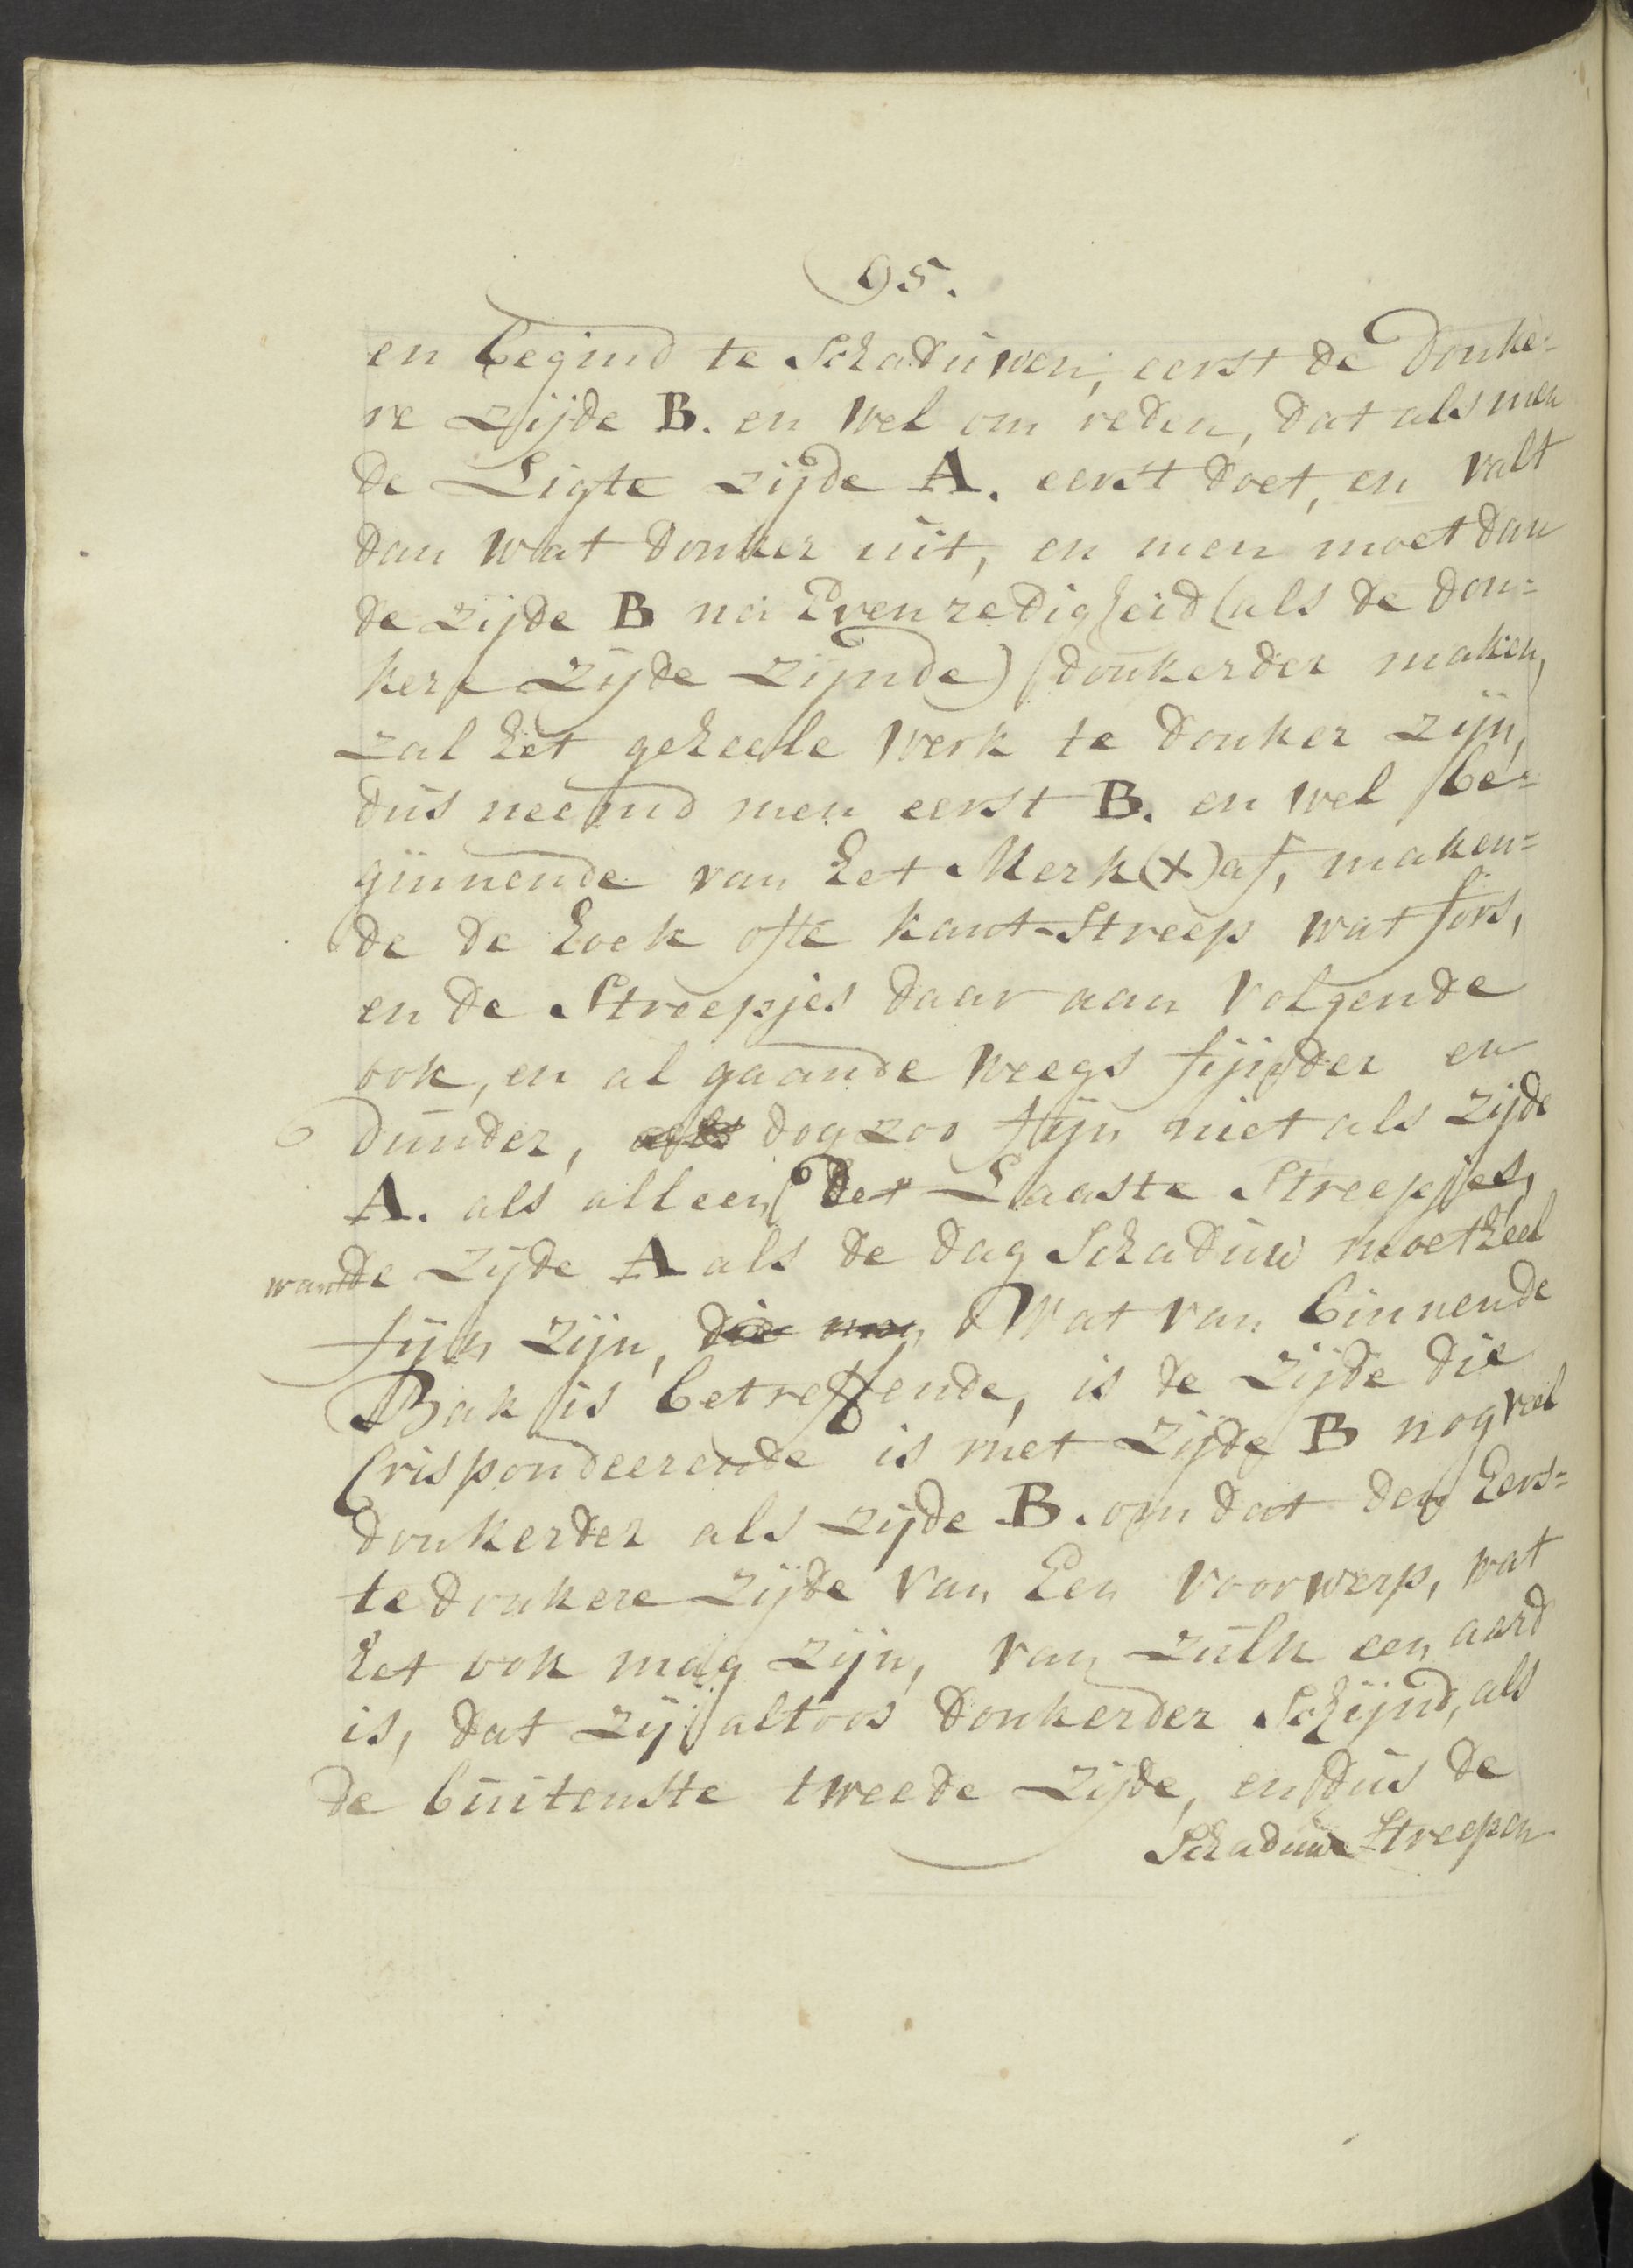 95.
en begind te Schaduwen; eerst de donke=
re zijde B. en wel om reden, dat als men
de Ligte zijde A. eerst doet, en valt
dan wat donker uit, en men moet dan
de zijde B na Evenredigheid (als de don=
kere zijde zijnde) donkerder maken,
zal het geheele werk te donker zijn,
dus neemd men eerst B. en wel be=
ginnende van het Merk (x) af, maken=
de de hoek ofte kant-Streep wat fors,
en de Streepjes daar aan volgende
ook, en al gaande weegs fijnder en
dunder, dog zoo fijn niet als zijde
A. als alleen de Laaste Streepjes,
want de zijde A als de dag Schaduw moet heel
fijn zijn, die Wat van binnen de
Bak is betreffende, is de zijde die
Crispondeerende is met zijde B nog veel
donkerder als zijde B. om dat den Eers=
te donkere zijde van Een voorwerp, wat
het ook mag zijn, van zulk een aard
is, dat zij altoos donkerder Schijnd, als
de buitenste tweede zijde, en dus de
Schaduwe Streepen